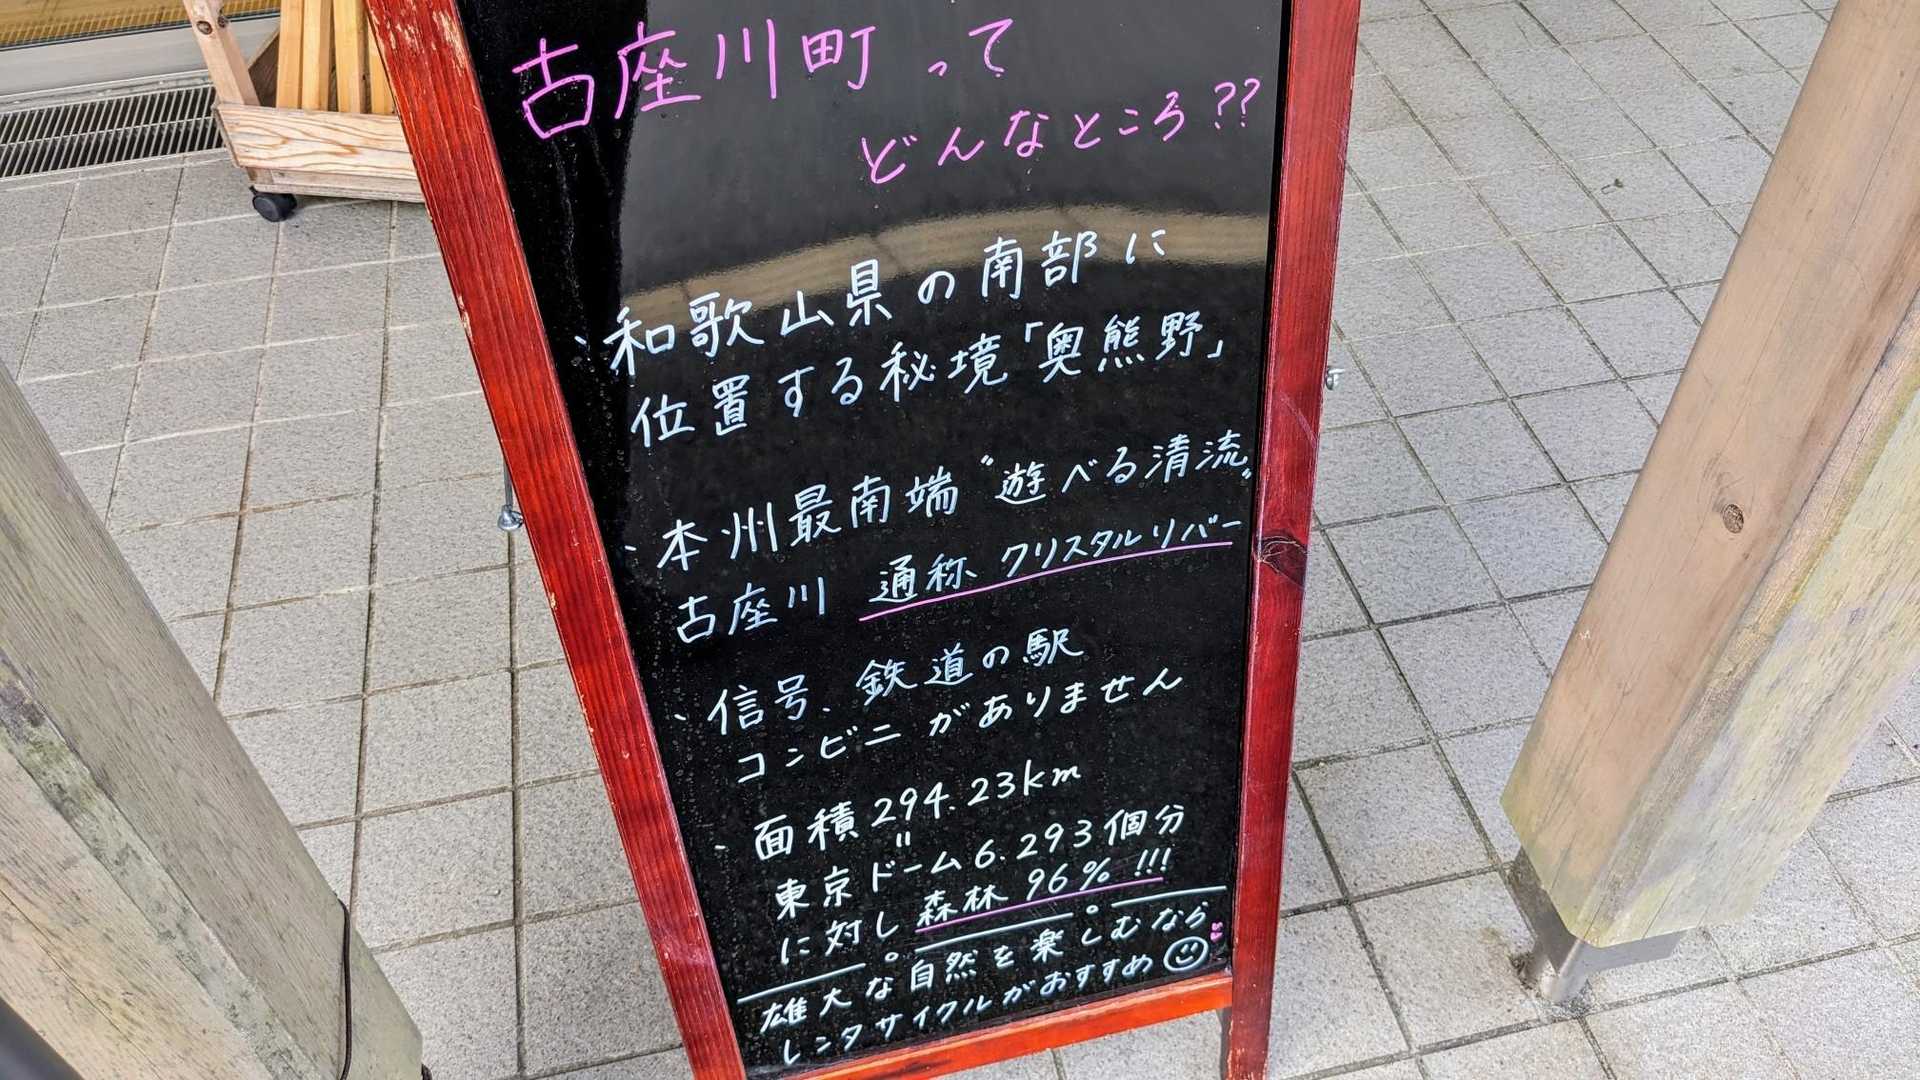 古座川町って
どんなところ??
・和歌山県の南部に
位置する秘境「奥熊野」
・本州最南端〝遊べる清流〟
古座川 通称 クリスタルリバー
・信号、鉄道の駅
コンビニがありません
・面積294.23km
〃
東京ドーム6.293個分
に対し森林96%!!!
雄大な自然を楽しむなら
レンタサイクルがおすすめ